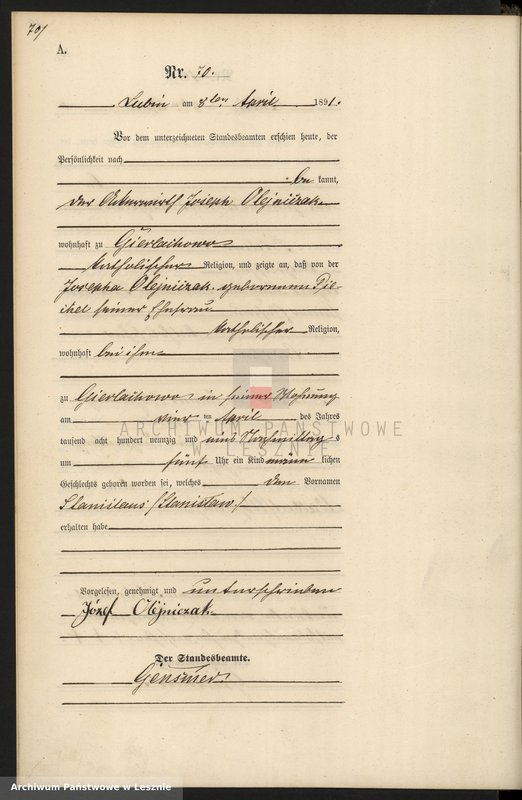 70/
A.
Nr. 70.
Lubin am 8ten April 1891.
Vor dem unterzeichneten Standesbeamten erschien heute, der
Persönlichkeit nach
be kannt,
der Ackerwirth Joseph Olejniczak
wohnhaft zu Gierlachowo
katholischer Religion, und zeigte an, daß von der
Josepha Olejniczak geborenen
seiner Ehefrau
katholischer Religion,
wohnhaft bei ihm
zu Gierlachowo in seiner Wohnung
am vier ten April des Jahres
tausend acht hundert neunzig und eins Nachmittag s
um fünf Uhr ein Kind männ lichen
Geschlechts geboren worden sei, welches den Vornamen
Stanislaus /Stanisław/
erhalten habe
Vorgelesen, genehmigt und unterschrieben
Józef Olejniczak
Der Standesbeamte.
Gensmer
ARCHIWUM PAŃSTWOWE
W LESZNIE
Archiwum Państwowe w Lesznie